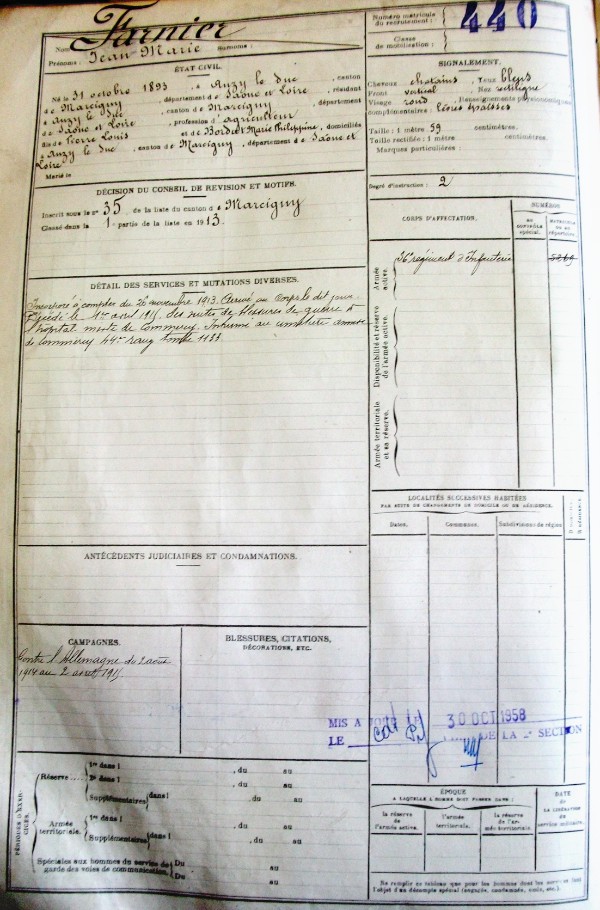 Nom : Farnier
Prénoms : Jean Marie Surnoms :
Numéro matricule du recrutement : 440
Classe de mobilisation :
ÉTAT CIVIL.
Né le 31 octobre 1893, à Anzy le Duc, canton
de Marcigny, département de Saône et Loire, résidant
à Anzy le Duc, canton de Marcigny, département
de Saône et Loire, profession d'agriculteur
fils de Pierre Louis et de Bordier Marie Philippine, domiciliés
à Anzy le Duc, canton de Marcigny, département de Saône et
Loire
Marié le
SIGNALEMENT.
Cheveux chatains, Yeux bleus
Front vertical Nez rectiligne
Visage rond, Renseignements physionomiques
complémentaires : Lèvres épaisses
Taille : 1 mètre 59 centimètres.
Taille rectifiée : 1 mètre centimètres.
Marques particulières :
Degré d'instruction : 2
DÉCISION DU CONSEIL DE REVISION ET MOTIFS.
Inscrit sous le n° 35 de la liste du canton de Marcigny
Classé dans la 1e partie de la liste en 1913.
CORPS D'AFFECTATION.
NUMÉROS
au contrôle spécial.
matricule ou au répertoire.
Armée active.
56e régiment d'Infanterie
Disponibilité et réserve de l'armée active.
Armée territoriale et sa réserve.
DÉTAIL DES SERVICES ET MUTATIONS DIVERSES.
Incorporé à compter du 26 novembre 1913. Arrivé au Corps le dit jour.
Décédé le 1er avril 1915. Des suites de blessures de guerre à
l'hôpital mixte de Commercy. Inhumé au cimetière annexe
de Commercy 44e rang tombe 1133.
LOCALITÉS SUCCESSIVES HABITÉES
PAR SUITE DE CHANGEMENTS DE DOMICILE OU DE RÉSIDENCE.
Dates. Communes. Subdivisions de région
ANTÉCÉDENTS JUDICIAIRES ET CONDAMNATIONS.
CAMPAGNES.
Contre l'Allemagne du 2 août
1914 au 2 avril 1915
BLESSURES, CITATIONS,
DÉCORATIONS, ETC.
MIS A JOUR LE 30 OCT 1958
LE DE LA SECTION
PÉRIODES D'EXERCICES.
Réserve
1re dans l , du au
2e dans l , du au
Supplémentaires dans l , du au
Armée territoriale.
1re dans l , du au
Supplémentaires dans l , du au
Spéciales aux hommes du service de garde des voies de communication.
Du au
Du au
ÉPOQUE
A LAQUELLE L'HOMME DOIT PASSER DANS :
la réserve de l'armée active.
l'armée territoriale.
la réserve de l'armée territoriale.
DATE de la LIBÉRATION du service militaire.
Ne remplir ce tableau que pour les hommes dont les services font
l'objet d'un décompte spécial (engagés, condamnés, omis, etc.).